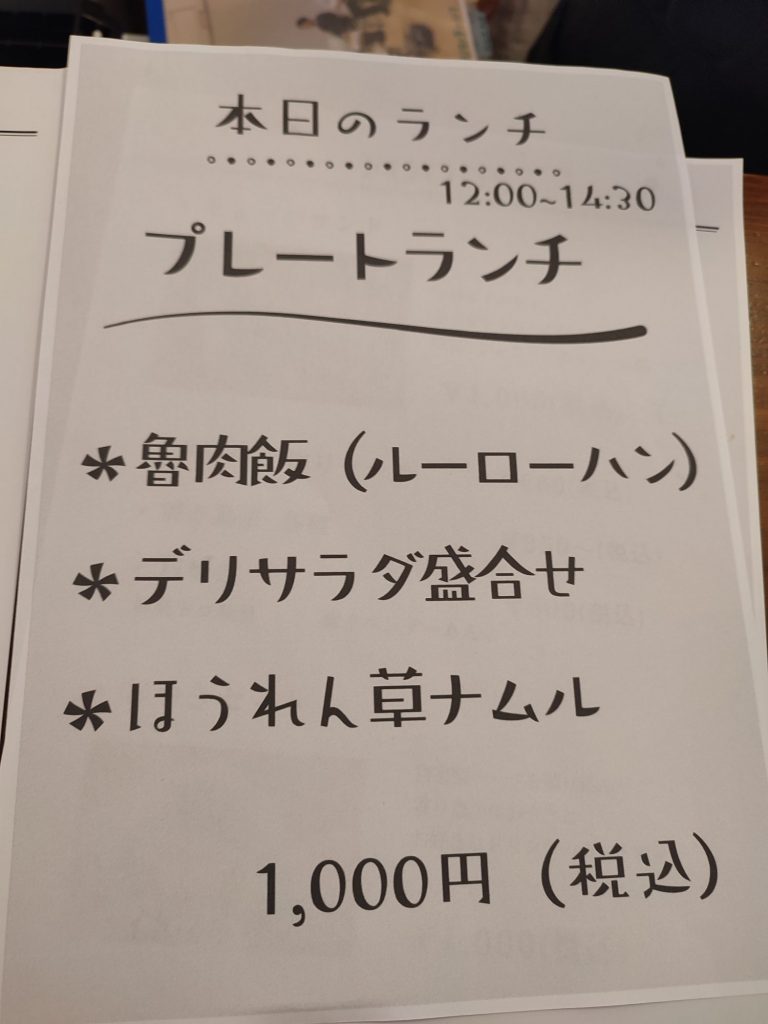 本日のランチ
12:00~14:30
プレートランチ
*魯肉飯 (ルーローハン)
*デリサラダ盛合せ
*ほうれん草ナムル
1,000円 (税込)